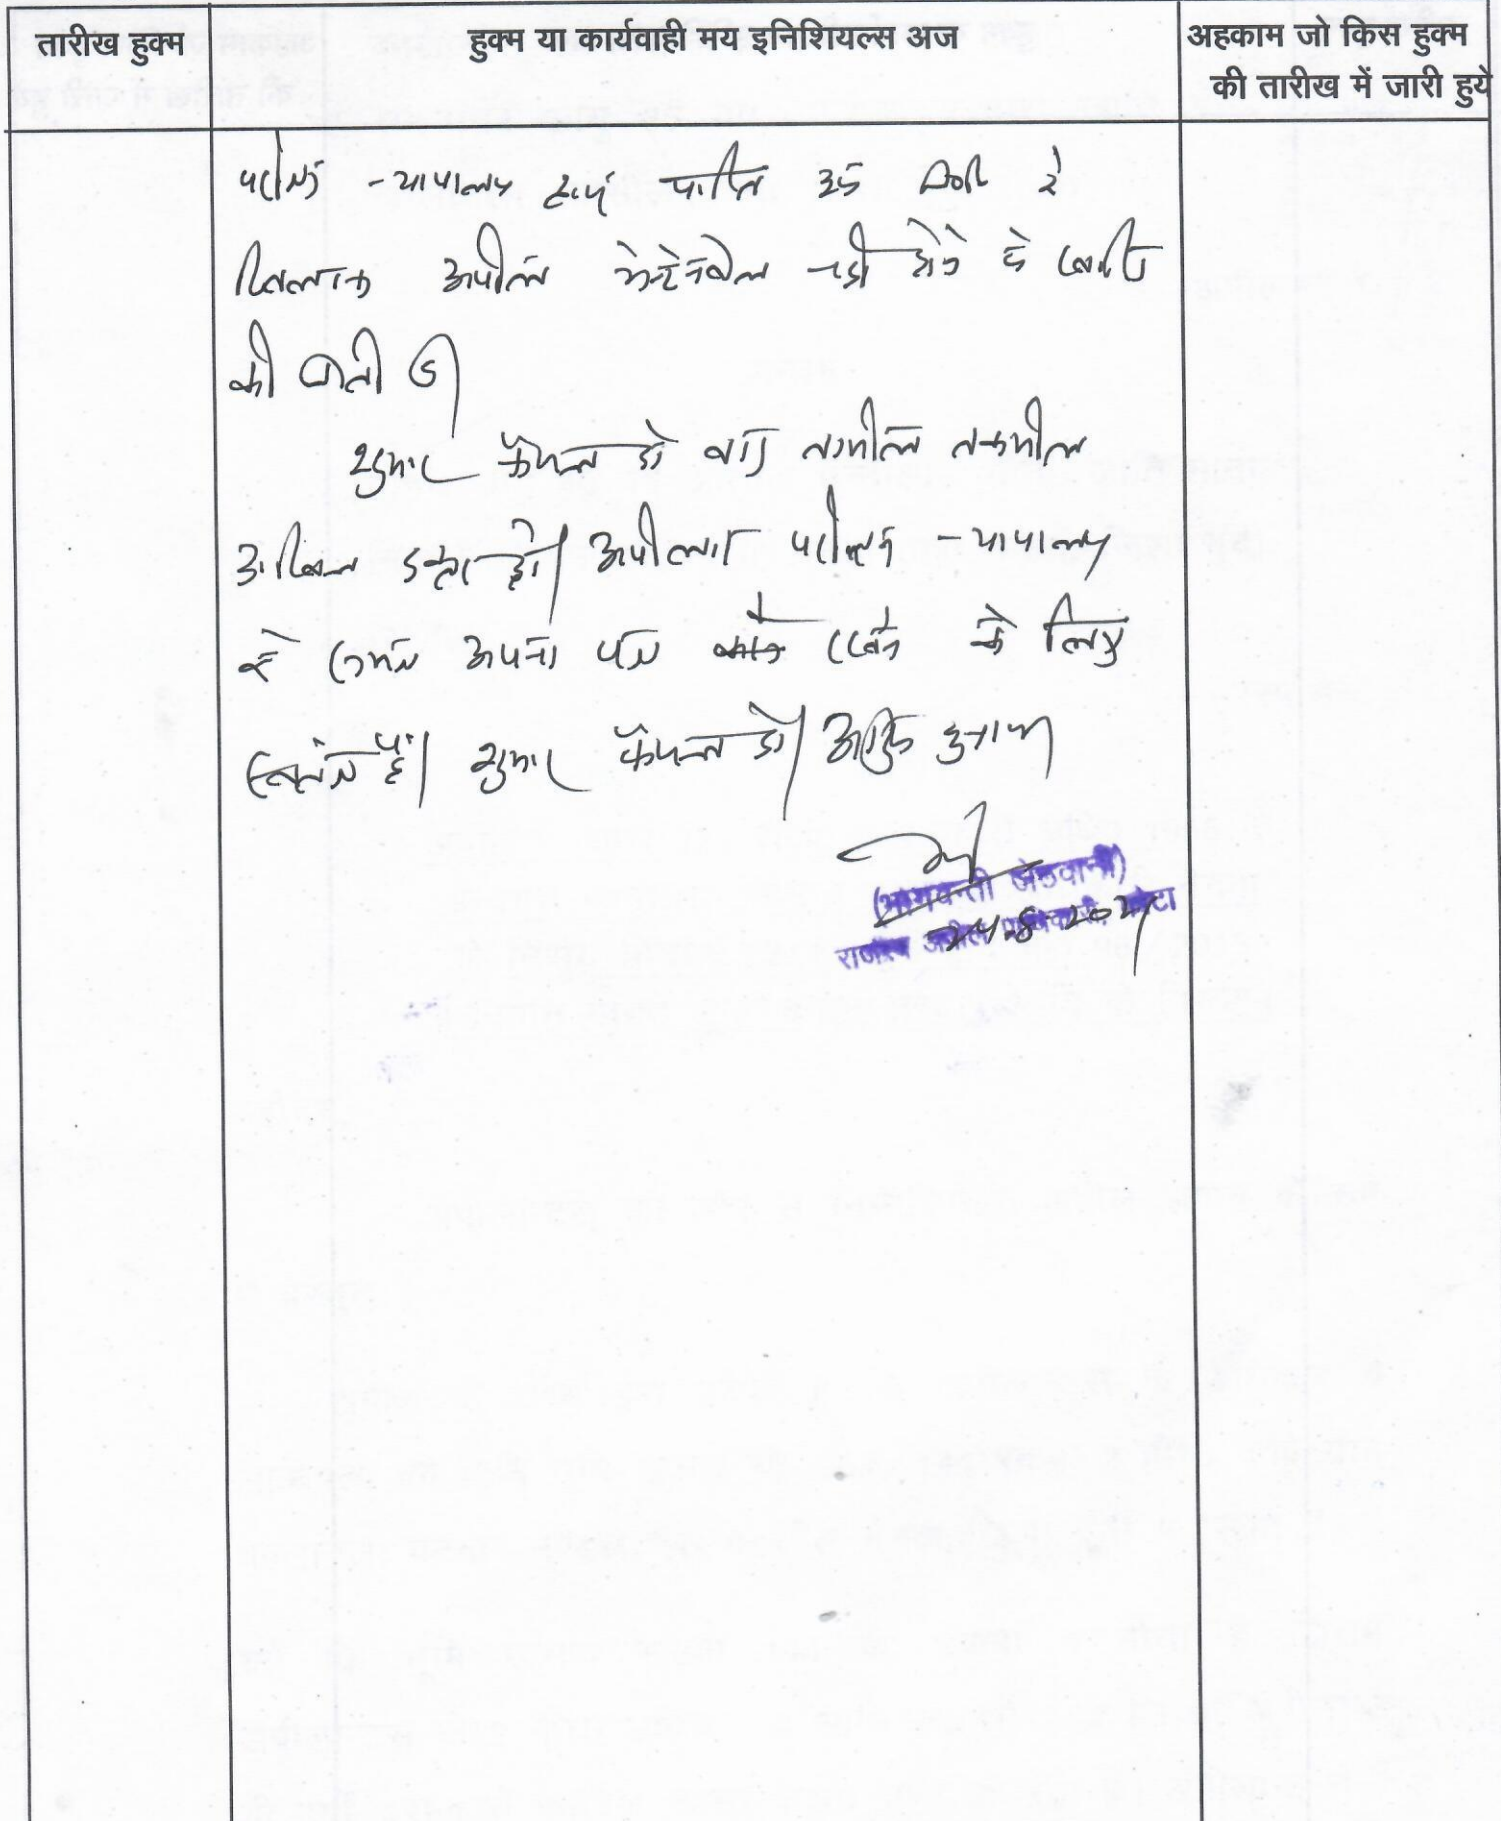 तारीख हुक्म
हुक्म या कार्यवाही मय इनिशियल्स अज
अहकाम जो किस हुक्म
की तारीख में जारी हुये
न्यायालय द्वारा पारित उस के
खिलाफ अपील मेन्टेनेबल नही होने से खारिज
की जाती है।
शुमार फैसल हो बाद तामील तकमील
दाखिल दफ्तर हो। न्यायालय
के समक्ष अपना पक्ष रखने के लिए
स्वतंत्र है। शुमार फैसल हो।
(भागवन्ती जेठवानी)
राजस्व अपील प्राधिकारी, कोटा